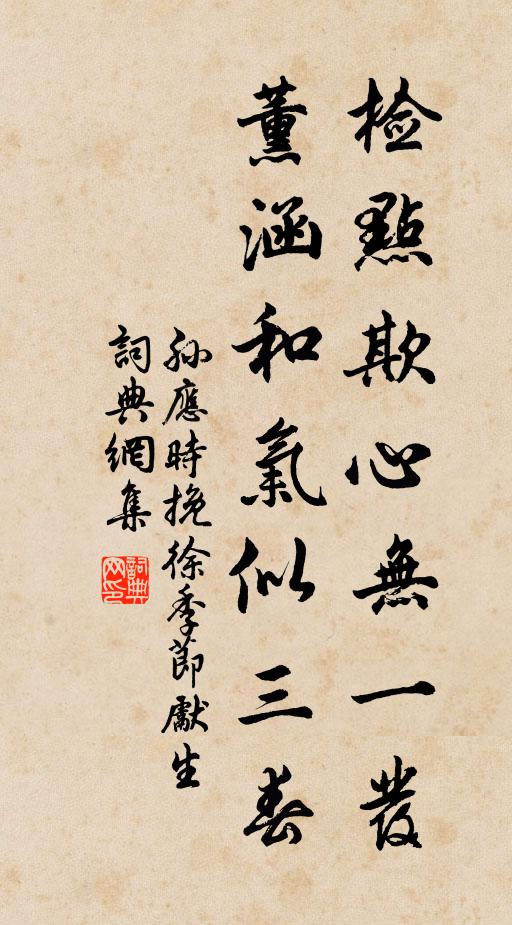 檢點欺心無一發
薰涵和氣似三春
孫應時挽徐季節獻生
詞典網集
詞典網印